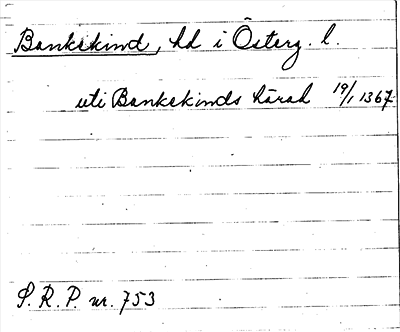 Bankekind, hd i Österg. l.
uti Bankekinds härad 19/1 1367.
S. R. P. nr. 753